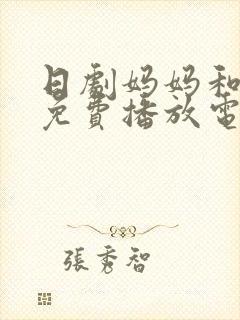 日劇妈妈和
免費播放電
張秀智